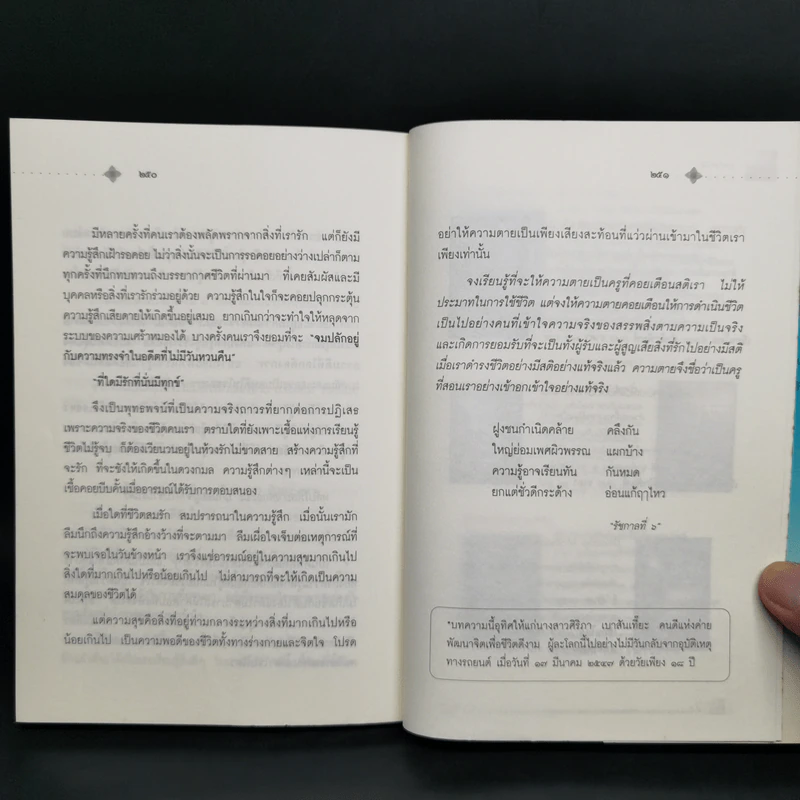 ๒๕๐
มีหลายครั้งที่คนเราต้องพลัดพรากจากสิ่งที่เรารัก แต่ก็ยังมี
ความรู้สึกเฝ้ารอคอย ไม่ว่าสิ่งนั้นจะเป็นการรอคอยอย่างว่างเปล่าก็ตาม
ทุกครั้งที่นึกทบทวนถึงบรรยากาศชีวิตที่ผ่านมา ที่เคยสัมผัสและมี
บุคคลหรือสิ่งที่เรารักร่วมอยู่ด้วย ความรู้สึกในใจก็จะคอยปลุกกระตุ้น
ความรู้สึกเสียดายให้เกิดขึ้นอยู่เสมอ ยากเกินกว่าจะทำใจให้หลุดจาก
ระบบของความเศร้าหมองได้ บางครั้งคนเราจึงยอมที่จะ "จมปลักอยู่
กับความทรงจำในอดีตที่ไม่มีวันหวนคืน"
"ที่ใดมีรักที่นั่นมีทุกข์"
จึงเป็นพุทธพจน์ที่เป็นความจริงถาวรที่ยากต่อการปฏิเสธ
เพราะความจริงของชีวิตคนเรา ตราบใดที่ยังเพาะเชื้อแห่งการเรียนรู้
ชีวิตไม่รู้จบ ก็ต้องเวียนวนอยู่ในห้วงรักไม่ขาดสาย สร้างความรู้สึกที่
จะรัก ที่จะชังให้เกิดขึ้นในดวงกมล ความรู้สึกต่างๆ เหล่านี้จะเป็น
เชื้อคอยบีบคั้นเมื่ออารมณ์ได้รับการตอบสนอง
เมื่อใดที่ชีวิตสมรัก สมปรารถนาในความรู้สึก เมื่อนั้นเรามัก
ลืมนึกถึงความรู้สึกอ้างว้างที่จะตามมา ลืมเผื่อใจเจ็บต่อเหตุการณ์ที่
จะพบเจอในวันข้างหน้า เราจึงแช่อารมณ์อยู่ในความสุขมากเกินไป
สิ่งใดที่มากเกินไปหรือน้อยเกินไป ไม่สามารถที่จะให้เกิดเป็นความ
สมดุลของชีวิตได้
แต่ความสุขคือสิ่งที่อยู่ท่ามกลางระหว่างสิ่งที่มากเกินไปหรือ
น้อยเกินไป เป็นความพอดีของชีวิตทั้งทางร่างกายและจิตใจ โปรด
๒๕๑
อย่าให้ความตายเป็นเพียงเสียงสะท้อนที่แว่วผ่านเข้ามาในชีวิตเรา
เพียงเท่านั้น
จงเรียนรู้ที่จะให้ความตายเป็นครูที่คอยเตือนสติเรา ไม่ให้
ประมาทในการใช้ชีวิต แต่จงให้ความตายคอยเตือนให้การดำเนินชีวิต
เป็นไปอย่างคนที่เข้าใจความจริงของสรรพสิ่งตามความเป็นจริง
และเกิดการยอมรับที่จะเป็นทั้งผู้รับและผู้สูญเสียสิ่งที่รักไปอย่างมีสติ
เมื่อเราดำรงชีวิตอย่างมีสติอย่างแท้จริงแล้ว ความตายจึงชื่อว่าเป็นครู
ที่สอนเราอย่างเข้าอกเข้าใจอย่างแท้จริง
ฝูงชนกำเนิดคล้าย คลึงกัน
ใหญ่ย่อมเพศผิวพรรณ แผกบ้าง
ความรู้อาจเรียนทัน กันหมด
ยกแต่ชั่วดีกระด้าง อ่อนแก้ฤๅไหว
"รัชกาลที่ ๖"
"บทความนี้อุทิศให้แก่นางสาวศิริภา เบาสันเที๊ยะ คนดีแห่งค่าย
พัฒนาจิตเพื่อชีวิตดีงาม ผู้ละโลกนี้ไปอย่างไม่มีวันกลับจากอุบัติเหตุ
ทางรถยนต์ เมื่อวันที่ ๑๗ มีนาคม ๒๕๔๗ ด้วยวัยเพียง ๑๘ ปี